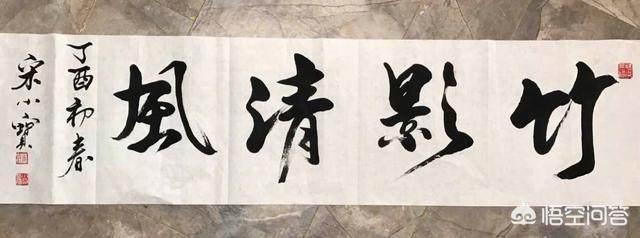 竹影清風
丁酉初春
宋小寶
悟空问答